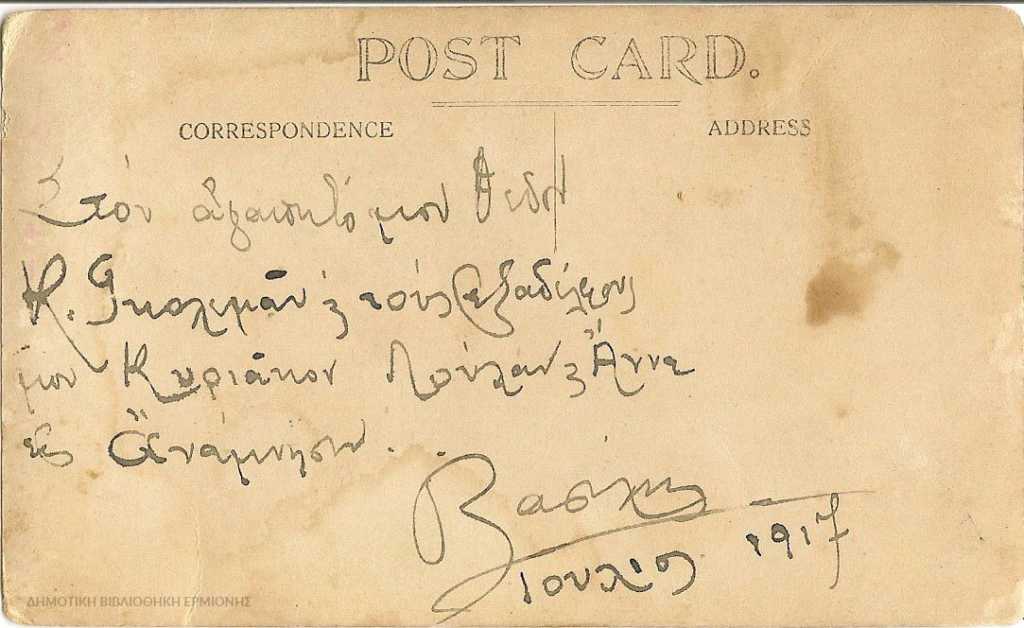 POST CARD.
CORRESPONDENCE
ADDRESS
Στόν ἀγαπητό μου θεῖον
Κ. Γκολεμᾶν & τούς ἐξαδέλφους
μου Κυριᾶκον Λούλαν & Ἄννα
εἰς Ἀνάμνησιν . .
Βασίλης
Ιούλιος 1917
ΔΗΜΟΤΙΚΗ ΒΙΒΛΙΟΘΗΚΗ ΕΡΜΙΟΝΗΣ